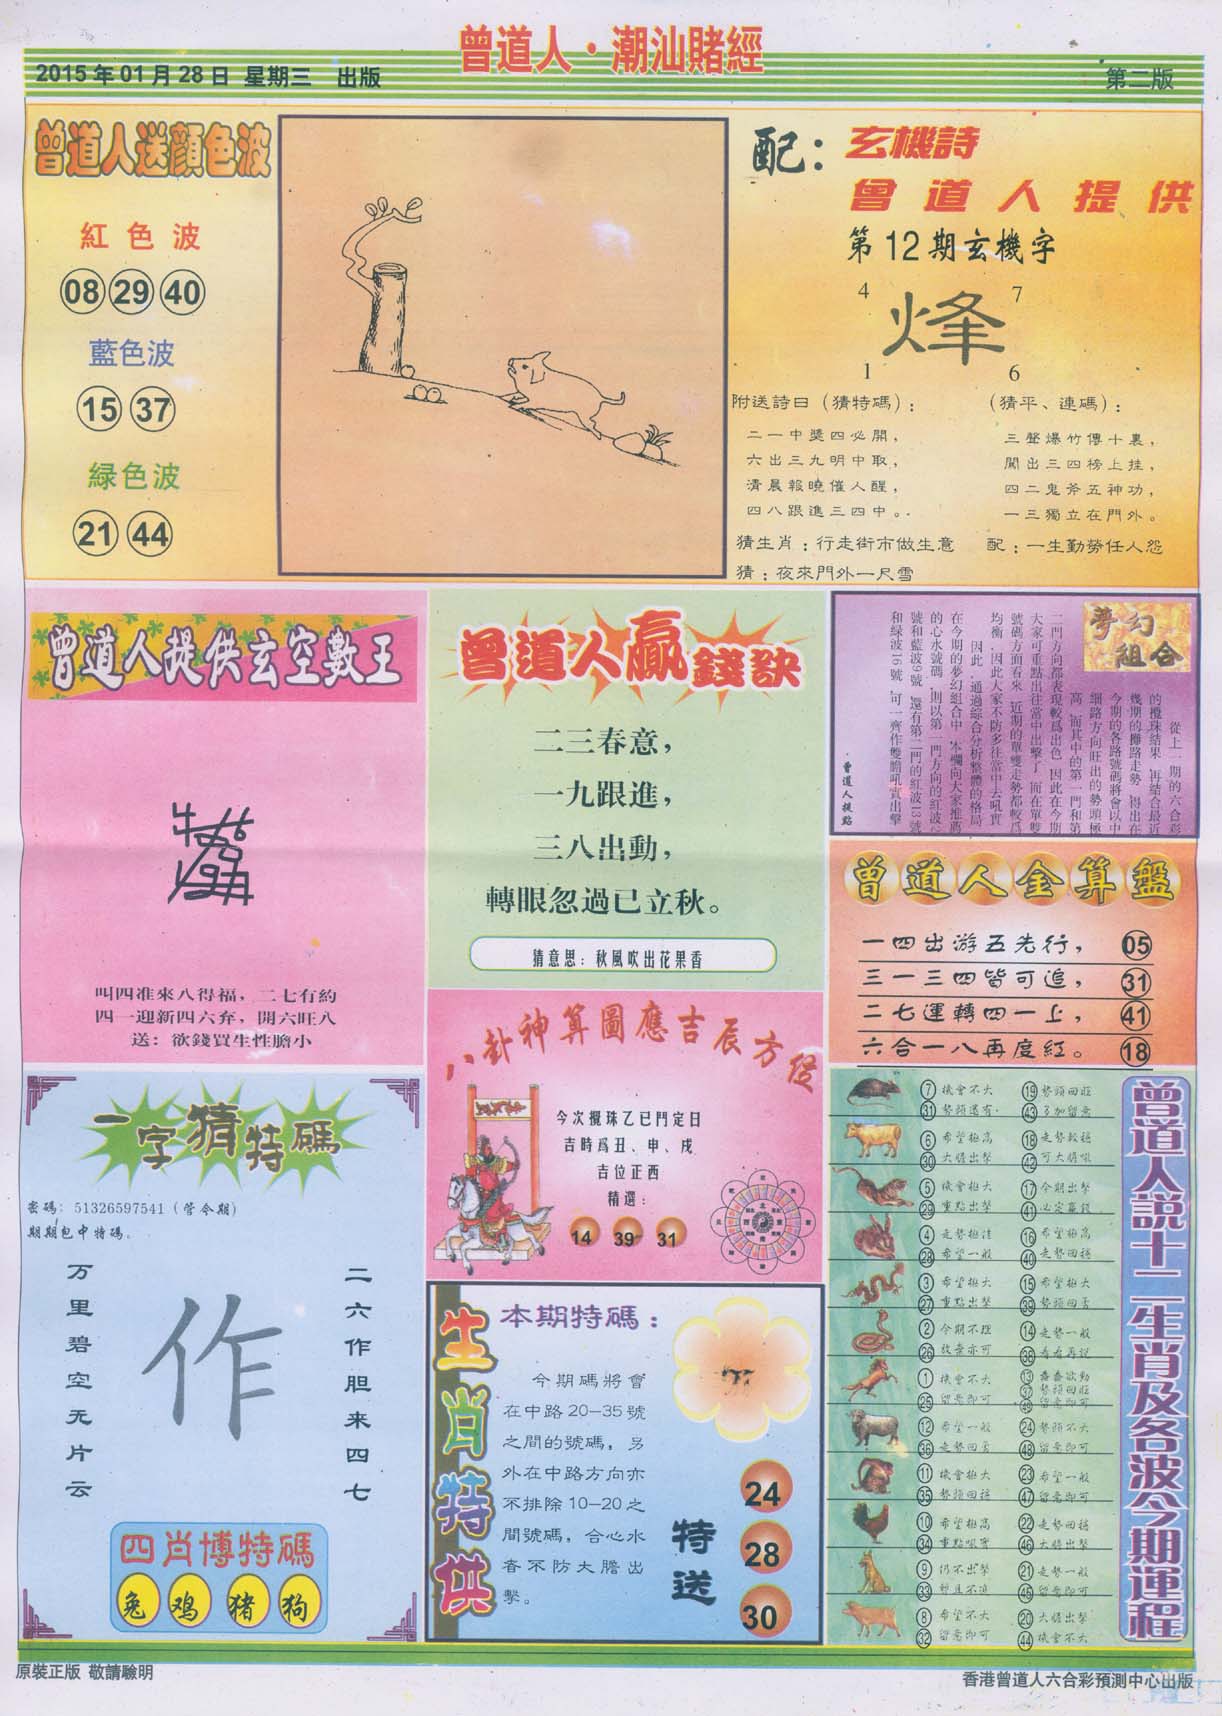 曾道人·潮汕賭經
2015年01月28日 星期三 出版
第二版
曾道人送顔色波
紅色波
08 29 40
藍色波
15 37
緑色波
21 44
配：玄機詩
曾道人提供
第12期玄機字
4 7
烽
1 6
附送詩曰（猜特碼）：
二一中獎四必開，
六出三九明中取，
清晨報曉催人醒，
四八跟進三四中。
（猜平、連碼）：
三聲爆竹傳十裏，
闖出三四榜上挂，
四二鬼斧五神功，
一三獨立在門外。
猜生肖：行走街市做生意
配：一生勤勞任人怨
猜：夜來門外一尺雪
曾道人提供玄空數王
叫四准來八得福，二七有約
四一迎新四六弃，開六旺八
送：欲錢買生性膽小
曾道人贏錢訣
二三春意，
一九跟進，
三八出動，
轉眼忽過已立秋。
猜意思：秋風吹出花果香
夢幻組合
從上一期的六合彩
的攪珠結果，再結合最近
幾期的攤路走勢，得出在
今期的各路號碼將會以中
細路方向旺出的勢頭極
高，而其中的第一門和第
二門方向都表現較爲出色，因此在今期
大家可重點出往當中出擊了，而在單雙
號碼方面看來，近期的單雙走勢都較爲
均衡，因此大家不防多往當中去吼實
因此，通過綜合分析整體的格局，
在今期的夢幻組合中，本欄向大家推薦
的心水號碼，則以第一門方向的紅波2
號和藍波9號，還有第二門的紅波13號
和緑波16號，可一齊作雙膽吼實出擊
·曾道人提點
曾道人金算盤
一四出游五先行， 05
三一三四皆可追， 31
二七運轉四一上， 41
六合一八再度紅。 18
八卦神算圖應吉辰方位
今次攪珠乙巳門定日
吉時爲丑、申、戌
吉位正西
精選：
14 39 31
一字猜特碼
密碼：51326597541（管今期）
期期包中特碼。
二六作胆来四七
作
万里碧空无片云
四肖博特碼
兔 鸡 猪 狗
生肖特供
本期特碼：
今期碼將會
在中路20—35號
之間的號碼，另
外在中路方向亦
不排除10—20之
間號碼，合心水
者不防大膽出
擊。
特送
24
28
30
曾道人說十二生肖及各波今期運程
7 機會不大 19 勢頭回旺
31 勢頭還有 43 多加留意
6 希望極高 18 走勢較穩
30 大膽出擊 42 可大膽吼
5 機會極大 17 今期出擊
29 重點出擊 41 必定赢錢
4 走勢極佳 16 希望極高
28 希望一般 40 走勢回穩
3 希望極大 15 希望極大
27 重點出擊 39 勢頭回勇
2 今期不理 14 走勢一般
26 放棄亦可 38 看看再説
1 機會不大 13 蠢蠢欲動
37 勢頭回旺
25 留意即可 49 留意即可
12 希望一般 24 勢頭不大
36 走勢回勇 48 留意即可
11 機會極大 23 希望一般
35 勢頭回穩 47 留意即可
10 希望極高 22 走勢回穩
34 重點吼實 46 大膽出擊
9 仍不出擊 21 走勢一般
33 暫且不追 45 留意即可
8 希望不大 20 大膽出擊
32 留意即可 44 機會不大
原裝正版 敬請驗明
香港曾道人六合彩預測中心出版